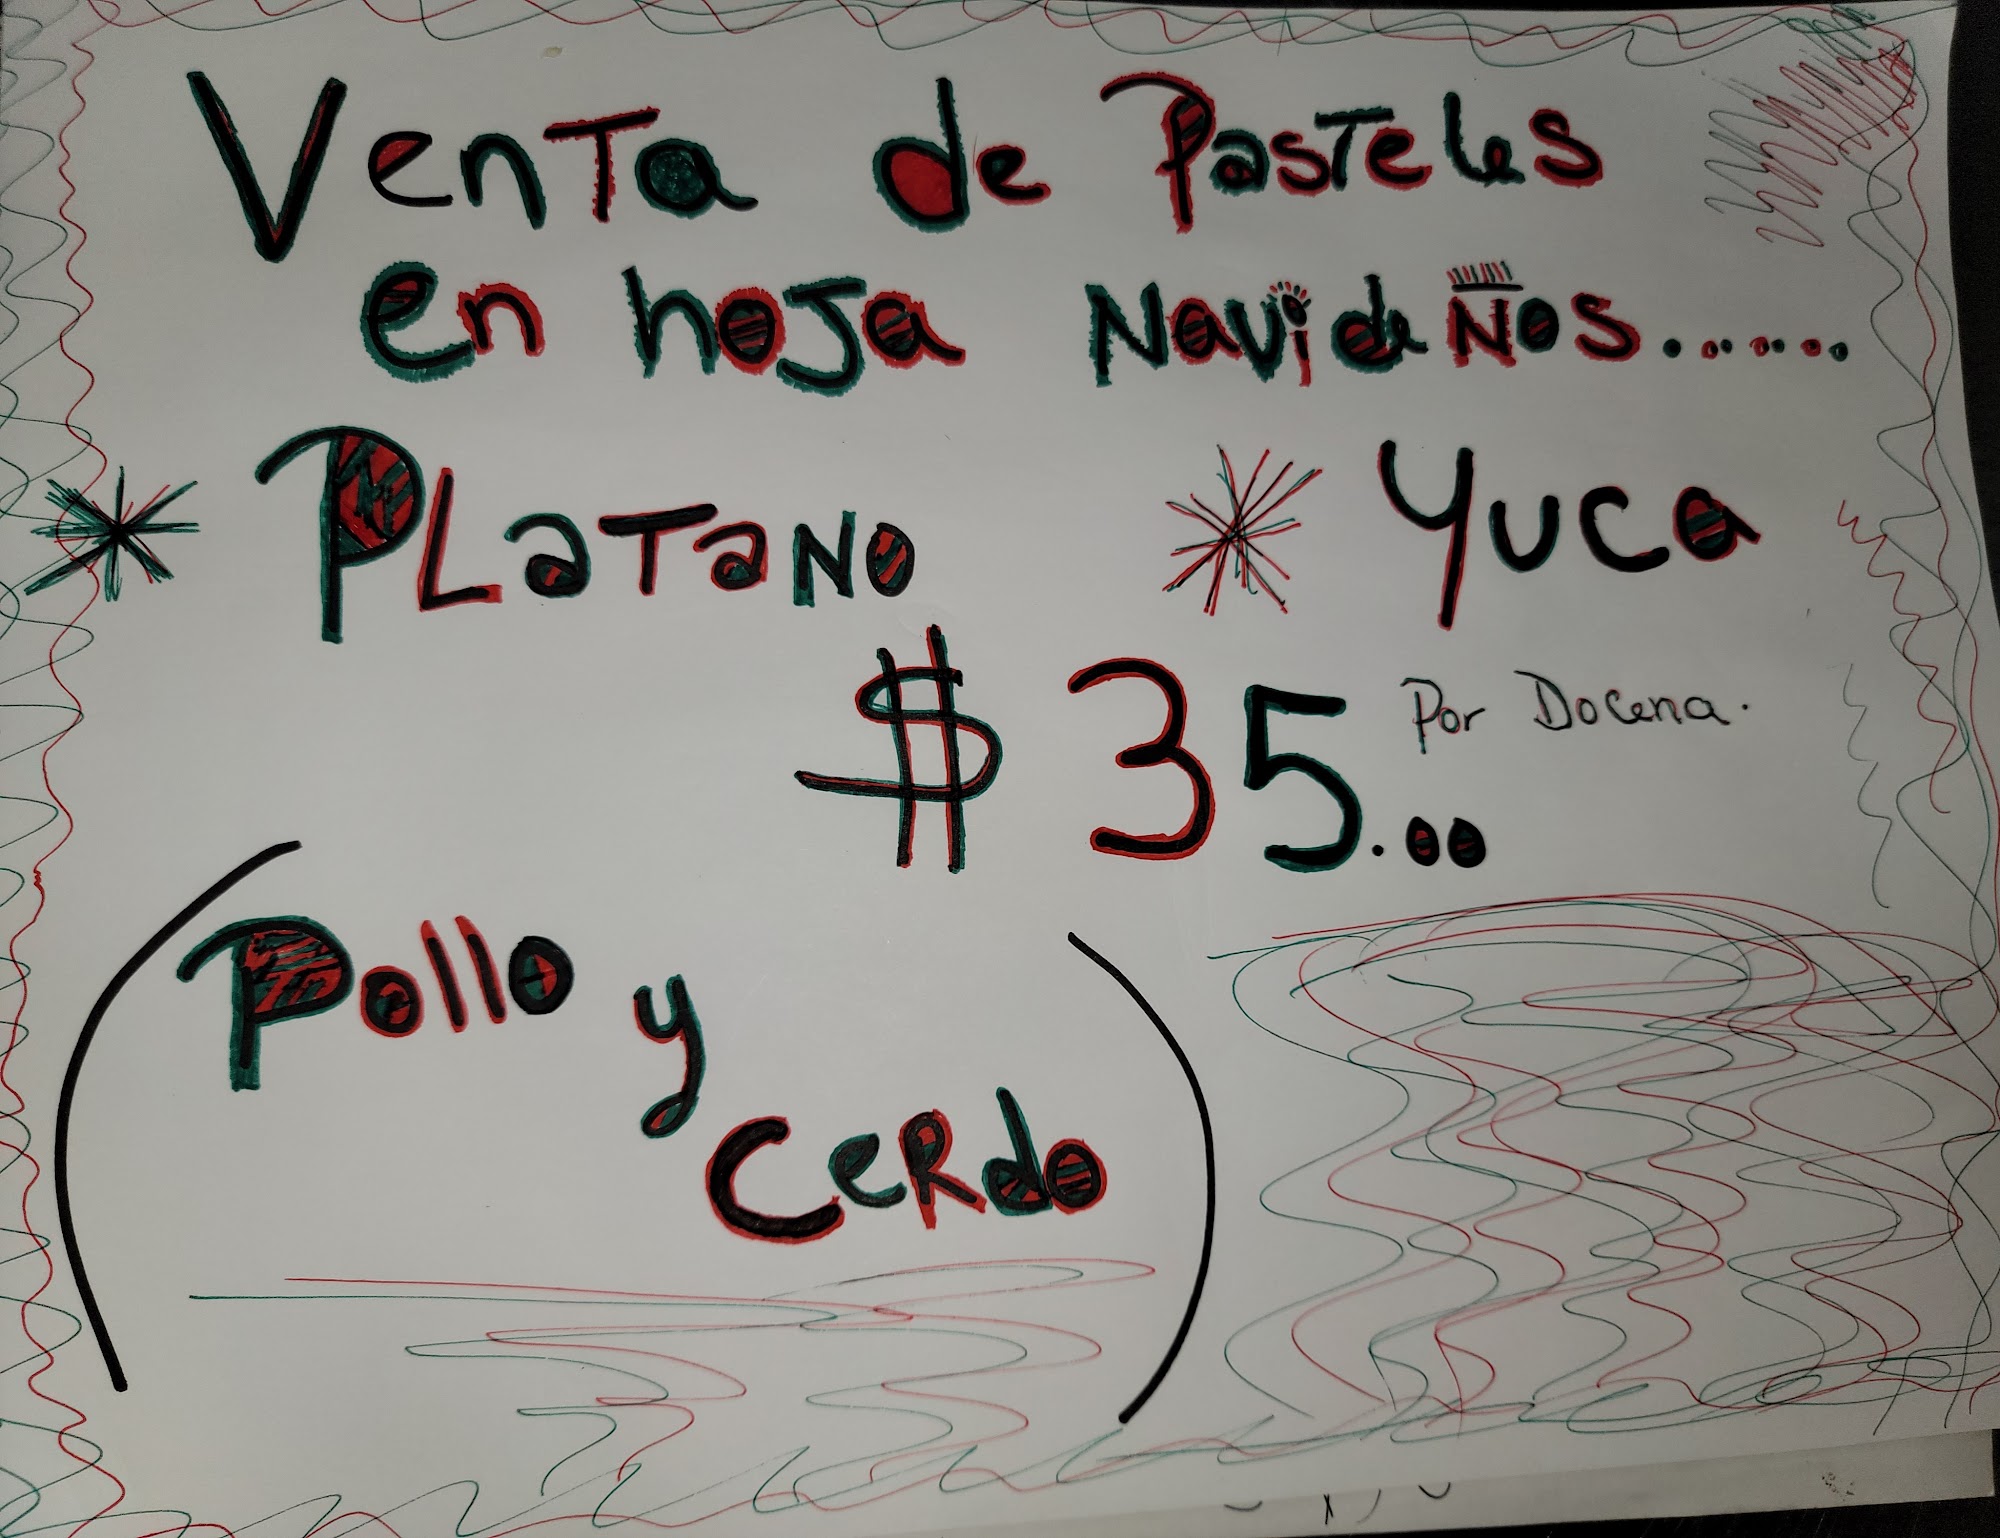 Venta de Pasteles
en hoja Navideños......
* PLaTaNO * Yuca
$ 35.00 Por Docena.
(Pollo y
Cerdo)